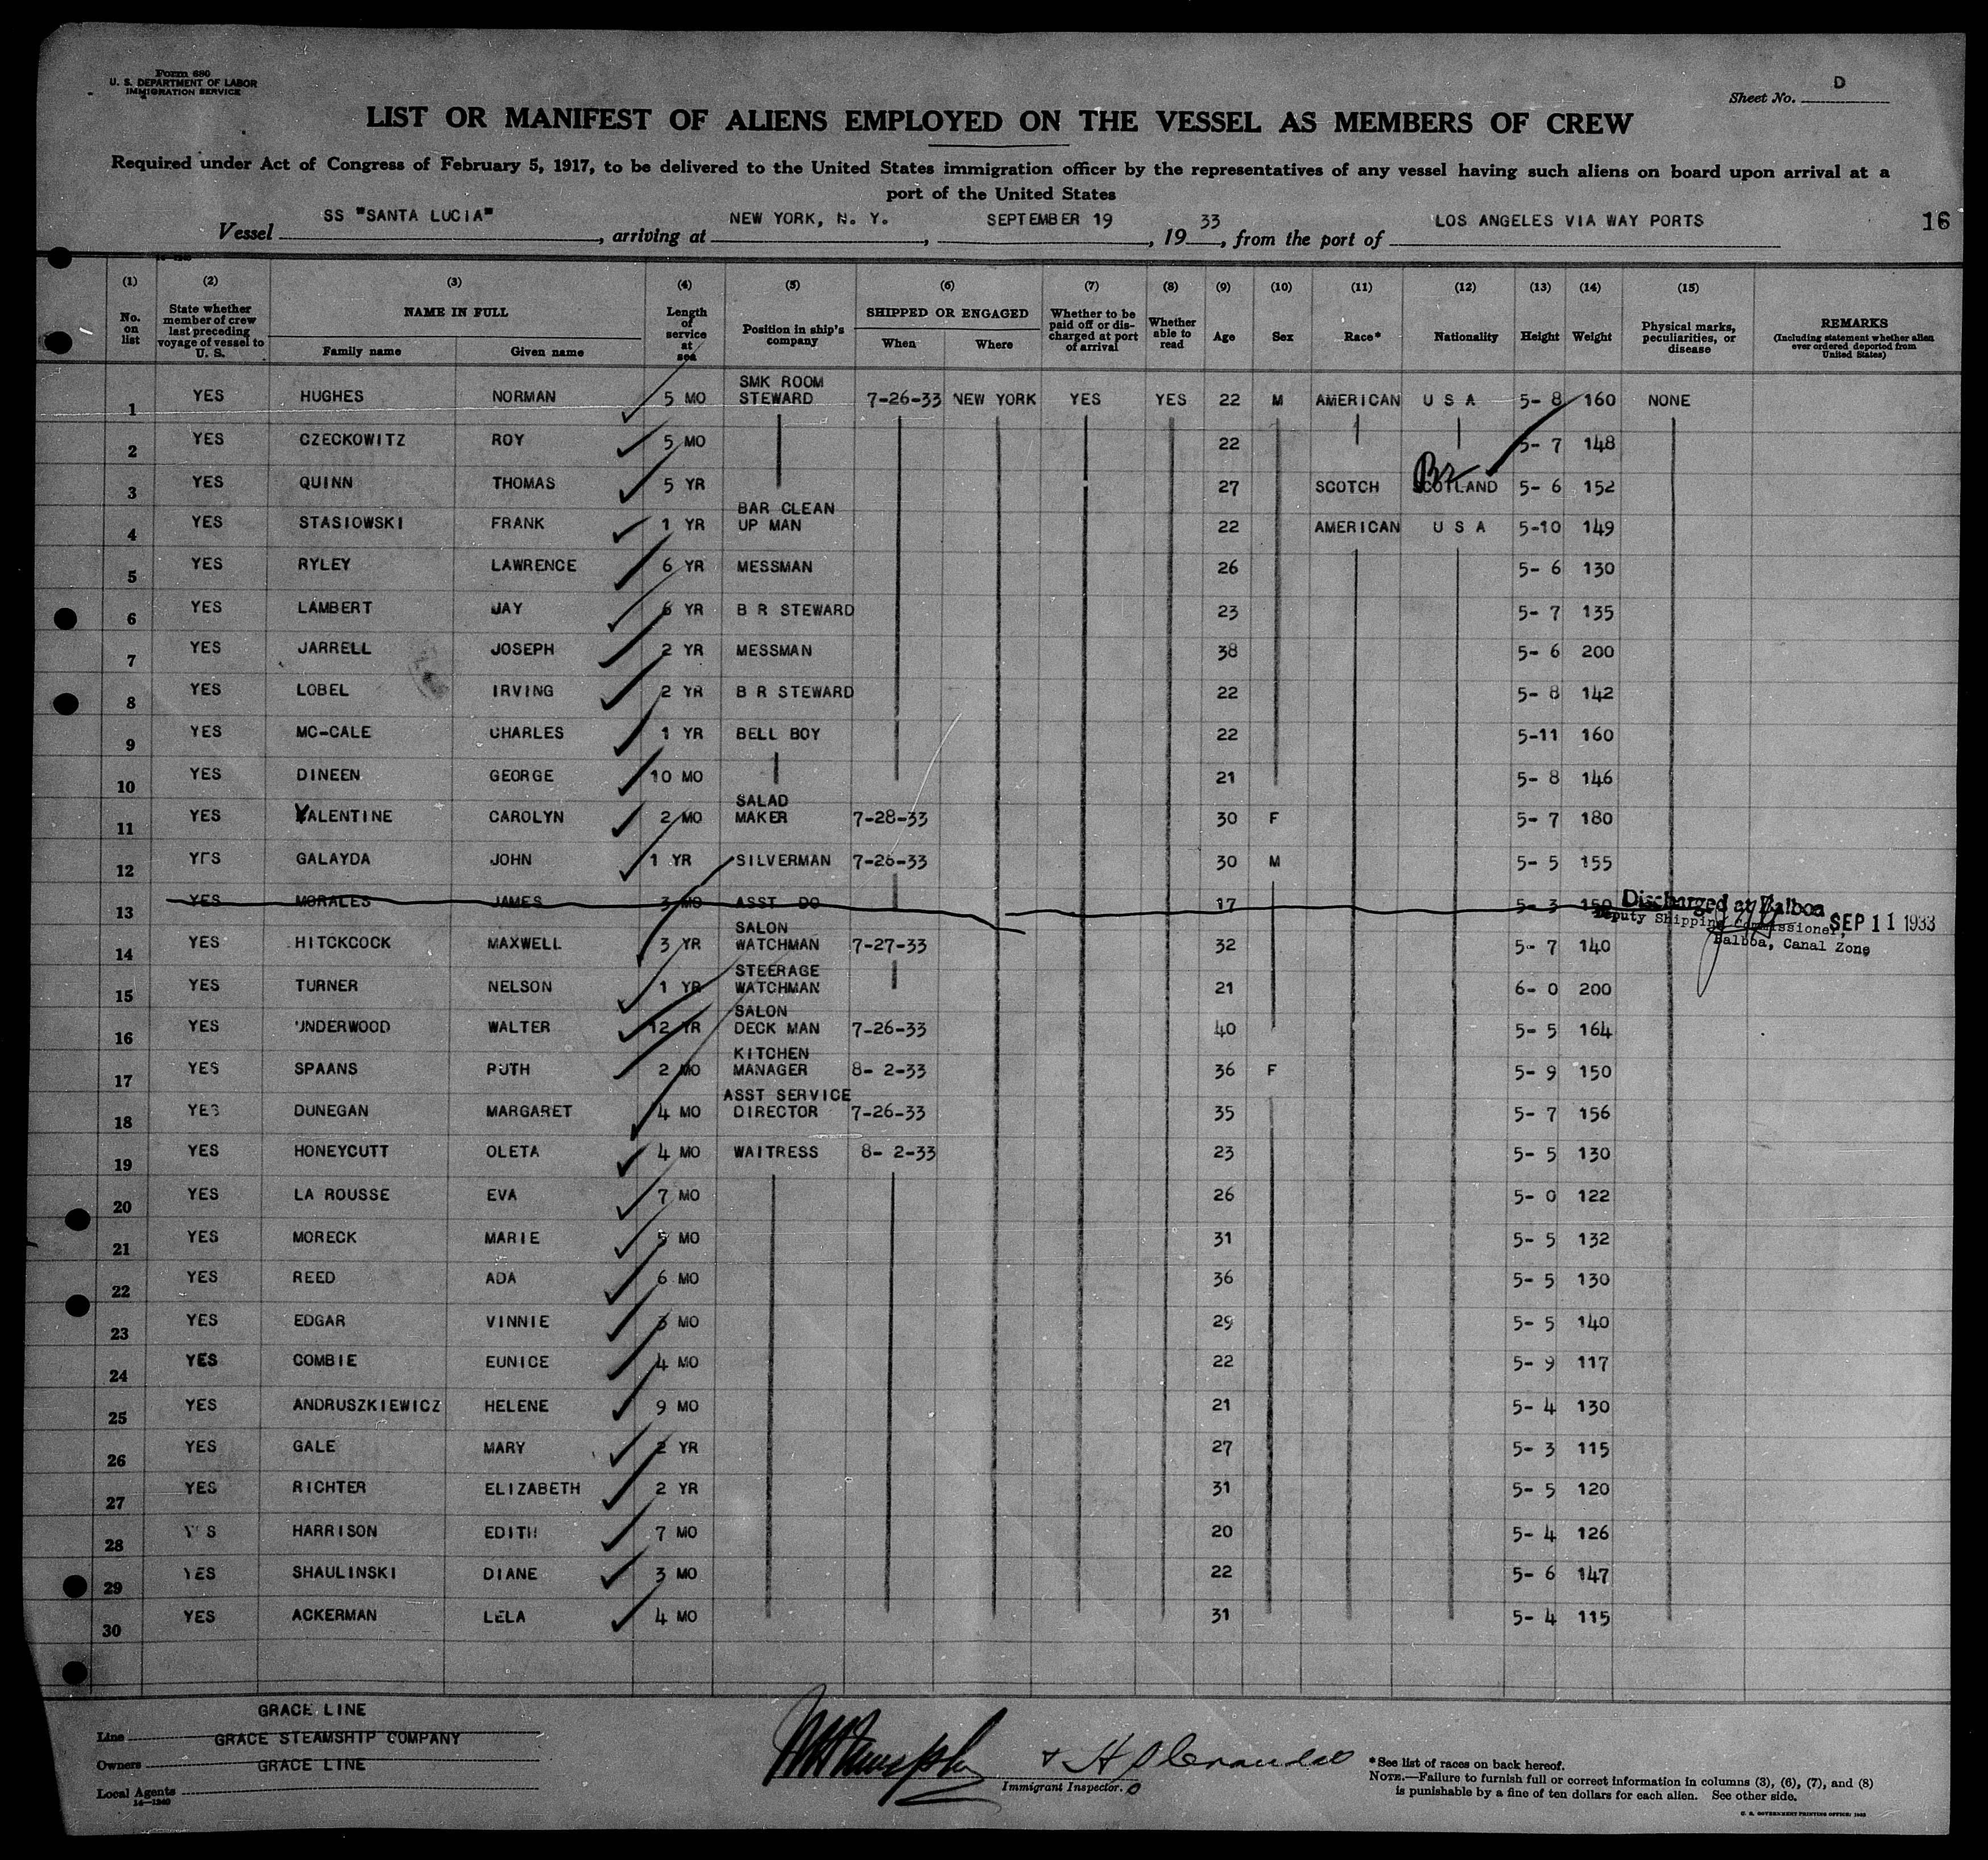 Form 680
U. S. DEPARTMENT OF LABOR
IMMIGRATION SERVICE
Sheet No. D
LIST OR MANIFEST OF ALIENS EMPLOYED ON THE VESSEL AS MEMBERS OF CREW
Required under Act of Congress of February 5, 1917, to be delivered to the United States immigration officer by the representatives of any vessel having such aliens on board upon arrival at a
port of the United States
Vessel SS "SANTA LUCIA", arriving at NEW YORK, N. Y., SEPTEMBER 19, 1933, from the port of LOS ANGELES VIA WAY PORTS 16
(1) No. on list (2) State whether member of crew last preceding voyage of vessel to U. S. (3) NAME IN FULL Family name Given name (4) Length of service at sea (5) Position in ship's company (6) SHIPPED OR ENGAGED When Where (7) Whether to be paid off or discharged at port of arrival (8) Whether able to read (9) Age (10) Sex (11) Race* (12) Nationality (13) Height (14) Weight (15) Physical marks, peculiarities, or disease REMARKS (Including statement whether alien ever ordered deported from United States)
1 YES HUGHES NORMAN 5 MO SMK ROOM STEWARD 7-26-33 NEW YORK YES YES 22 M AMERICAN U S A 5- 8 160 NONE
2 YES CZECKOWITZ ROY 5 MO 22 5- 7 148
3 YES QUINN THOMAS 5 YR 27 SCOTCH SCOTLAND Br 5- 6 152
4 YES STASIOWSKI FRANK 1 YR BAR CLEAN UP MAN 22 AMERICAN U S A 5-10 149
5 YES RYLEY LAWRENCE 6 YR MESSMAN 26 5- 6 130
6 YES LAMBERT JAY 6 YR B R STEWARD 23 5- 7 135
7 YES JARRELL JOSEPH 2 YR MESSMAN 38 5- 6 200
8 YES LOBEL IRVING 2 YR B R STEWARD 22 5- 8 142
9 YES MC-CALE CHARLES 1 YR BELL BOY 22 5-11 160
10 YES DINEEN GEORGE 10 MO 21 5- 8 146
11 YES VALENTINE CAROLYN 2 MO SALAD MAKER 7-28-33 30 F 5- 7 180
12 YES GALAYDA JOHN 1 YR SILVERMAN 7-26-33 30 M 5- 5 155
13 YES MORALES JAMES 3 MO ASST DO 17 5- 3 150 Discharged at Balboa SEP 11 1933
Deputy Shipping Commissioner,
Balboa, Canal Zone
14 YES HITCKCOCK MAXWELL 3 YR SALON WATCHMAN 7-27-33 32 5- 7 140
15 YES TURNER NELSON 1 YR STEERAGE WATCHMAN 21 6- 0 200
16 YES UNDERWOOD WALTER 12 YR SALON DECK MAN 7-26-33 40 5- 5 164
17 YES SPAANS RUTH 2 MO KITCHEN MANAGER 8- 2-33 36 F 5- 9 150
18 YES DUNEGAN MARGARET 4 MO ASST SERVICE DIRECTOR 7-26-33 35 5- 7 156
19 YES HONEYCUTT OLETA 4 MO WAITRESS 8- 2-33 23 5- 5 130
20 YES LA ROUSSE EVA 7 MO 26 5- 0 122
21 YES MORECK MARIE 5 MO 31 5- 5 132
22 YES REED ADA 6 MO 36 5- 5 130
23 YES EDGAR VINNIE 3 MO 29 5- 5 140
24 YES COMBIE EUNICE 4 MO 22 5- 9 117
25 YES ANDRUSZKIEWICZ HELENE 9 MO 21 5- 4 130
26 YES GALE MARY 2 YR 27 5- 3 115
27 YES RICHTER ELIZABETH 2 YR 31 5- 5 120
28 YES HARRISON EDITH 7 MO 20 5- 4 126
29 YES SHAULINSKI DIANE 3 MO 22 5- 6 147
30 YES ACKERMAN LELA 4 MO 31 5- 4 115
Line GRACE LINE
Owners GRACE STEAMSHIP COMPANY
Local Agents GRACE LINE
14—1240
Immigrant Inspector.
*See list of races on back hereof.
NOTE.—Failure to furnish full or correct information in columns (3), (6), (7), and (8)
is punishable by a fine of ten dollars for each alien. See other side.
U. S. GOVERNMENT PRINTING OFFICE: 1933